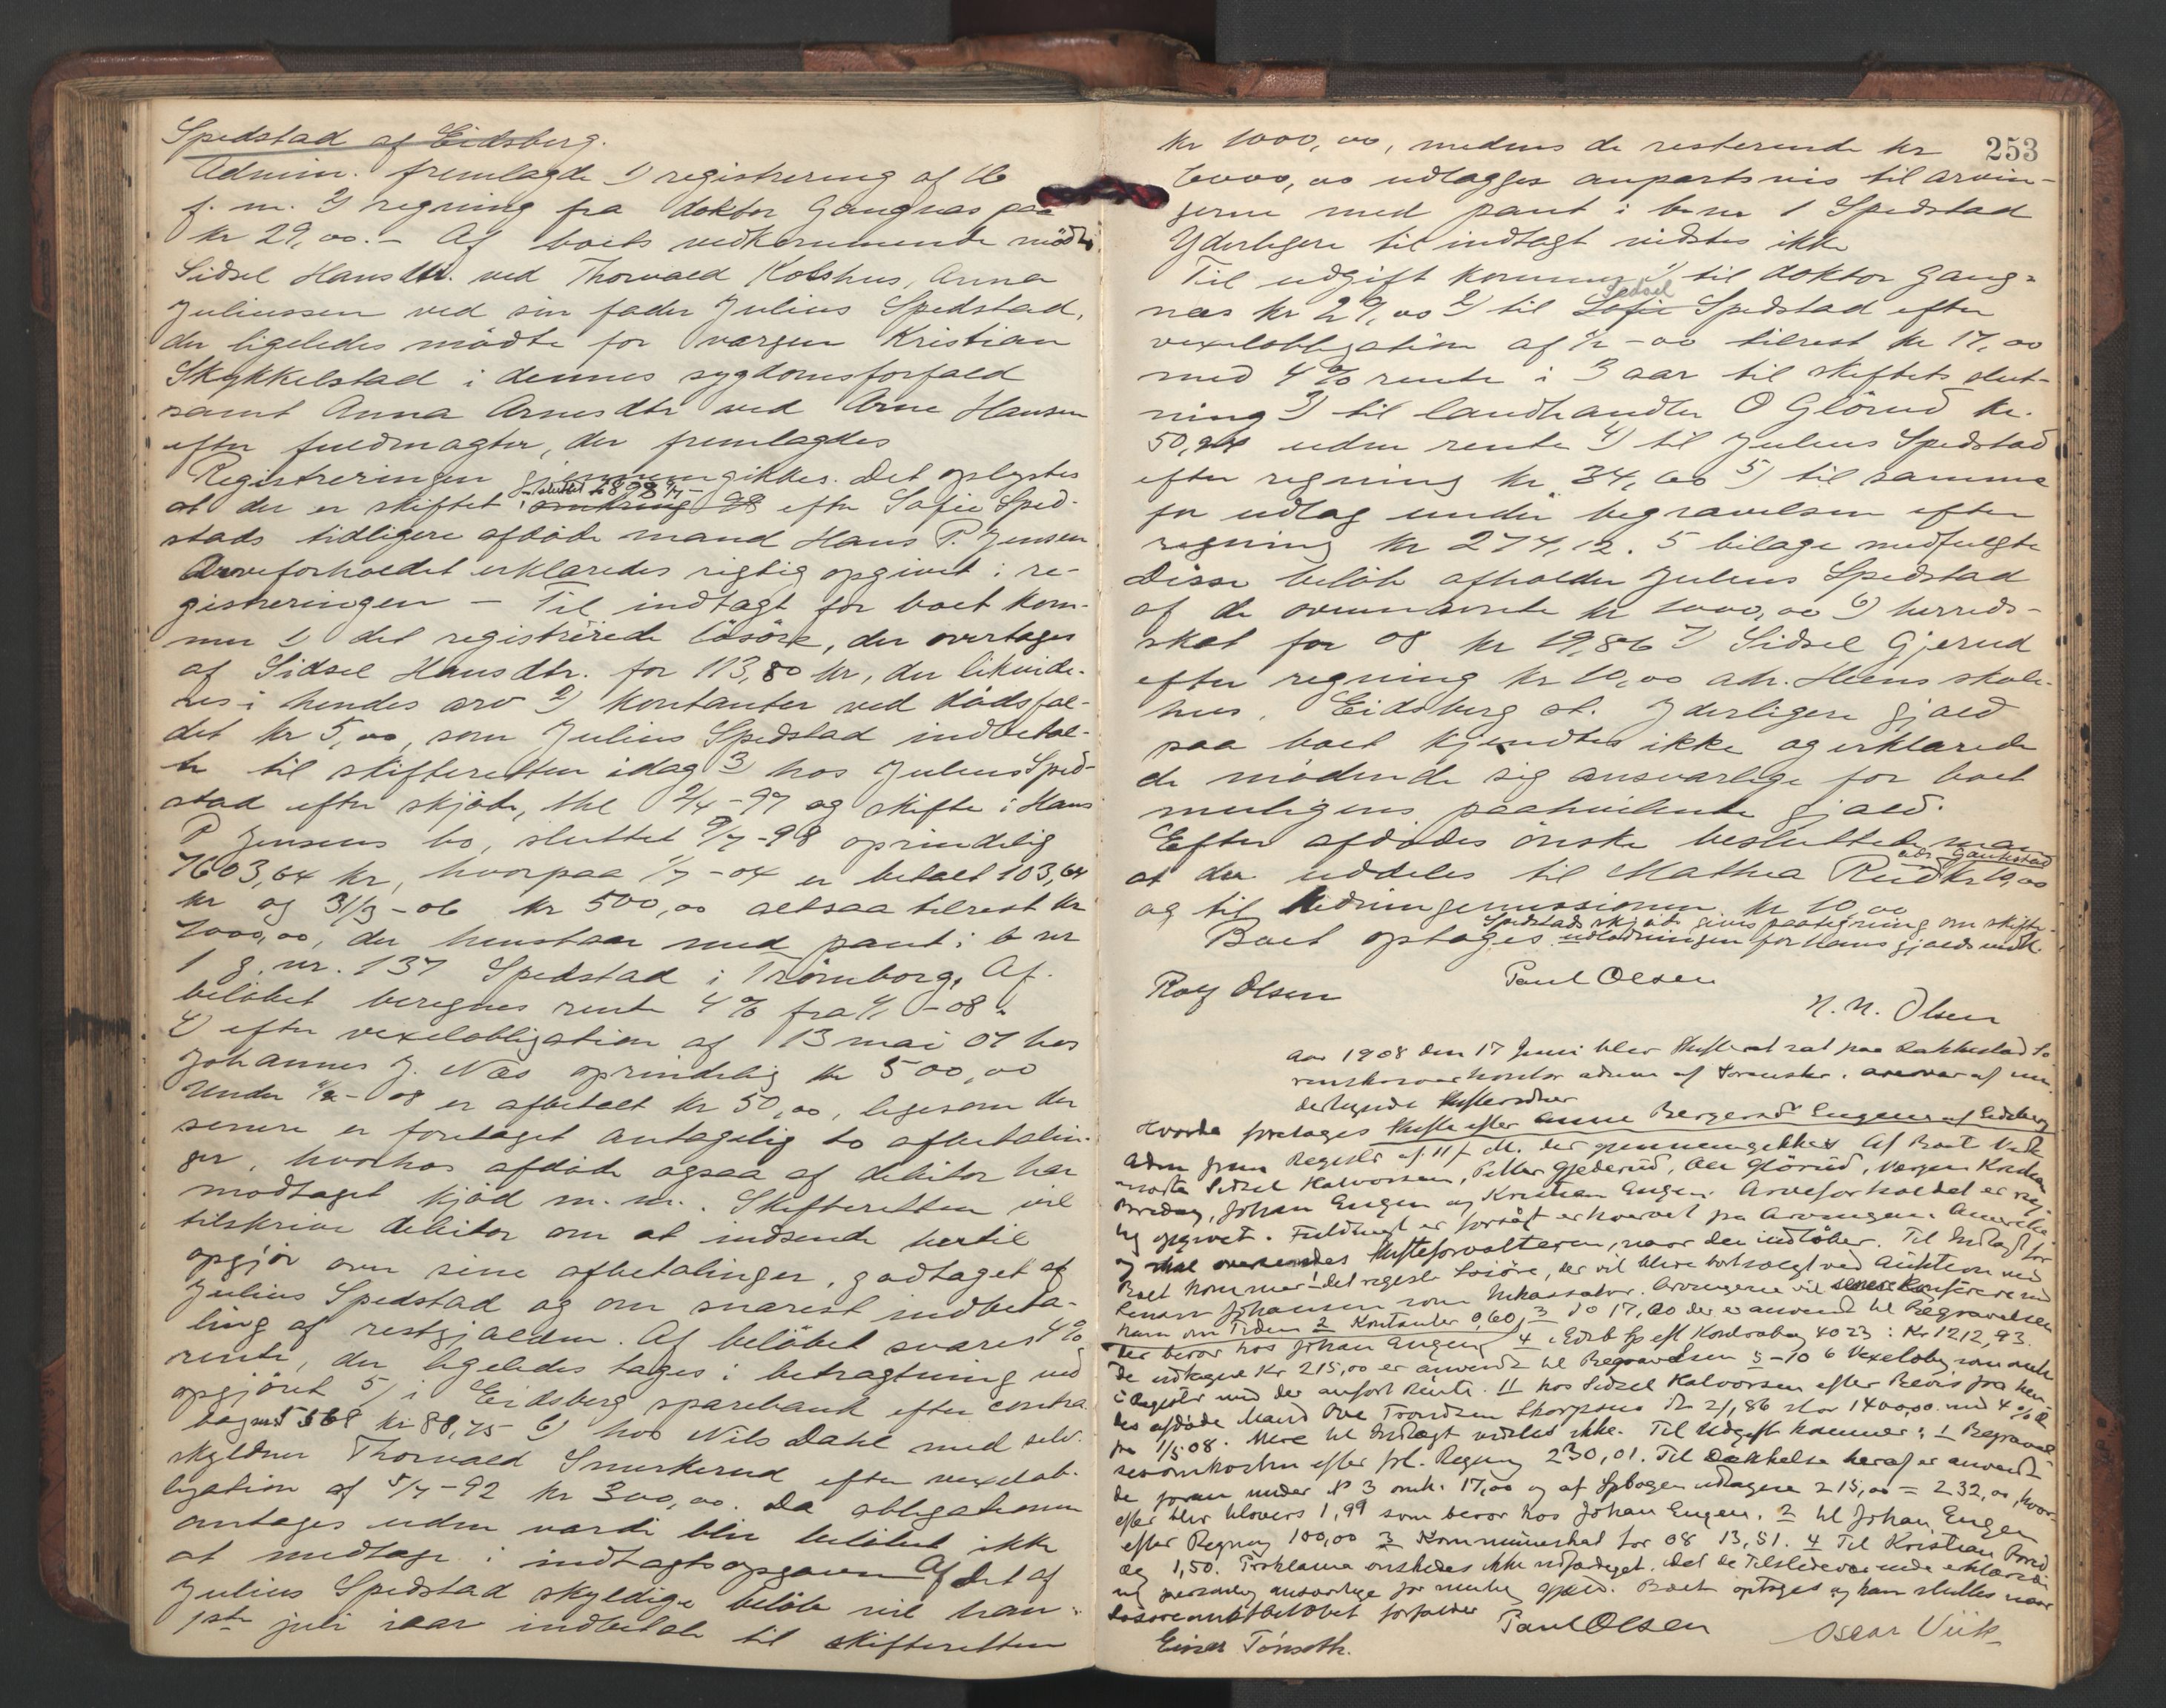 Spedstad af Eidsberg.
Admin. fremlagde 1) registrering af 16
f. m. 2) regning fra doktor Gangnæs paa
kr 29,00. – Af boets vedkommende mødte
Sidsel Hansdtr. ved Thorvald Kolshus, Anna
Juliussen ved sin fader Julius Spedstad,
der ligeledes mødte for værgen Kristian
Skykkelstad i dennes sygdomsforfald
samt Anna Arnesdtr ved Arne Hansen
efter fuldmagter, der fremlagdes
Registreringen gjennemgikkes. Det oplystes
sluttet 1898 9/7 –
at der er skiftet omkring 98 efter Sofie Sped-
stads tidligere afdøde mand Hans P. Jensen
Arveforholdet erklæredes rigtig opgivet i re-
gistreringen – Til indtægt for boet kom-
mer 1) det registrerede løsøre, der overtages
af Sidsel Hansdtr. for 113,80 kr, der likvide-
res i hendes arv 2) kontanter ved dødsfal-
det kr 5,00, som Julius Spedstad indbetal-
te til skifteretten idag 3) hos Julius Sped-
stad efter skjøde, thl 2/4-97 og skifte i Hans
P Jensens bo, sluttet 9/7-98 oprindelig
7603,64 kr, hvorpaa 1/7-04 er betalt 103,64
kr og 31/3-06 kr 500,00 altsaa tilrest kr
7000,00, der henstaar med pant i b nr
1 g. nr. 137 Spedstad i Trømborg. Af
beløbet beregnes rente 4 % fra 1/1-08.
4) efter vexelobligation af 13 mai 07 hos
Johannes J. Næs oprindelig kr 500,00
Under -08 er afbetalt kr 50,00, ligesom der
senere er foretaget antagelig to afbetalin-
ger, hvorhos afdøde ogsaa af debitor har
modtaget kjød m.m. Skifteretten vil
tilskrive debitor om at indsende hertil
opgjør over sine afbetalinger, godtaget af
Julius Spedstad og om snarest indbeta-
ling af restgjælden. Af beløbet svares 4 %
rente, der ligeledes tages i betragtning ved
opgjøret 5) i Eidsberg sparebank efter contra
bog nr 5568 kr 88,75 6) hos Nils Dahl med selv-
skyldner Thorvald Smerkerud efter vexelob-
ligation af 5/7-92 kr 300,00. Da obligationen
antages uden værdi blir beløbet ikke
at medtage i indtægtsopgaven Af det af
Julius Spedstad skyldige beløb vil han
1ste juli iaar indbetale til skifteretten
253
kr 1000,00, medens de resterende kr
6000,00 udlægges anpartsvis til arvin-
gerne med pant i b.nr 1 Spedstad
Yderligere til indtægt vidstes ikke
Til udgift kommer 1) til doktor Gang-
Sidsel
næs kr 29,00 2) til Sofie Spedstad efter
vexelobligation af -00 tilrest kr 17,00
med 4 % rente i 3 aar til skiftets slut-
ning 3) til landhandler O Glørud kr.
50, uden rente 4) til Julius Spedstad
efter regning kr 34,60 5) til samme
for udlæg under begravelsen efter
regning kr 274,12. 5 bilage medfulgte
Disse beløb afholder Julius Spedstad
af de ovennævnte kr 1000,00 6) herreds-
skat for 08 kr 19,86 7) Sidsel Gjerud
efter regning kr 10,00 adr. Heens skole-
hus, Eidsberg st. Yderligere gjæld
paa boet kjendtes ikke og erklærede
de mødende sig ansvarlige for boet
muligens paahvilende gjæld.
Efter afdødes ønske besluttede man
adr. Gaukstad
at der uddeles til Mathea Rud kr 10,00
og til kr 10,00
Spedstads skjøte gives paategning om skifte-
Boet optages. udlodningen for Hans gjælds vedk.
Rolf Olsen Paul Olsen
N. N. Olsen
Aar 1908 den 17 Juni blev Skifteret sat paa Rakkestad So
renskriverkontor adm. af Sorenskr. overvar af un
dertegnede Skiftevidner
Hvorda foretages Skifte efter Anne Bergersd. Engen af Eidsberg
Adm frem Registr af 11 f M. der gjennemgikkes Af Boet Vedk
mødte Sidsel Halvorsen, Petter Gjederud, Ole Glörud, Værgen Kristian
Bredag, Johan Engen og Kristian Engen. Arveforholdet er rig-
tig opgivet. Fuldmagt er forsøgt erhvervet fra Arvingen i Amerika
og skal oversendes Skifteforvalteren, naar den indløber. Til Indtægt for
Boet kommer 1 det registr Løsöre, der vil blive bortsolgt ved Auktion med
Lensm Johansen som Inkassator. Arvingerne vil senere konferere med
ham om Tiden 2 Kontanter 0,60, 3 do 17,00 der er anvendt til Begravelsen
der beror hos Johan Engen 4 i Edsb Sp eft Kontrabog 4023 : Kr 1212,93.
de udtagne Kr 215,00 er anvendt til Begravelsen 5 – 10 6 Vexeloblig som anfö
i Registr med der anfört Rente. 11 hos Sidsel Halvorsen efter Bevis fra hen-
des afdöde Mand Ove Trondsen Skorpsno dt 2/1 86 stor 1400,00 med 4 % R
fra 1/5 08. Mere til Indtægt vidstes ikke. Til Udgift kommer: 1 Begravel-
sesomkostn efter frl. Regning 230,01. Til Dækkelse heraf er anvendt
de foran under № 3 omh. 17,00 og af Spbogen udtagne 215,00 = 232,00, hvor-
efter blir tilovers 1,99 som beror hos Johan Engen. 2 til Johan Engen
efter Regning 100,00 3 Kommuneskat for 08 13,51. 4 Til Kristian Bred
ag 1,50. Proklama önskedes ikke udfærdiget. Det de Tilstedeværende erklærede
sig personlig ansvarlige for mulig Gjæld. Boet optages og kan sluttes naar
Lösöreauktbelöbet forfalder Paul Olsen Oscar Viik
Einar Tønseth.